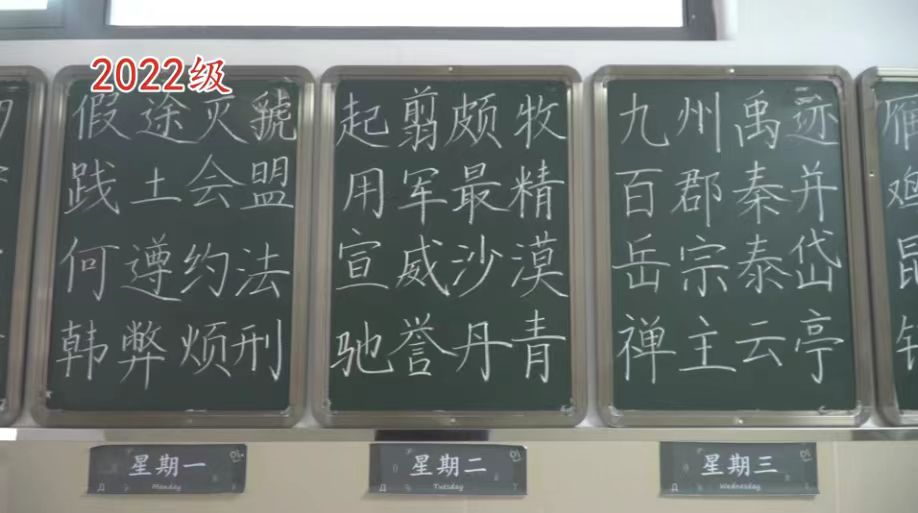 2022级
假途灭虢
践土会盟
何遵约法
韩弊烦刑
起翦颇牧
用军最精
宣威沙漠
驰誉丹青
九州禹迹
百郡秦并
岳宗泰岱
禅主云亭
雁
鸡
星期一
Monday
星期二
Tuesday
星期三
Wednesday